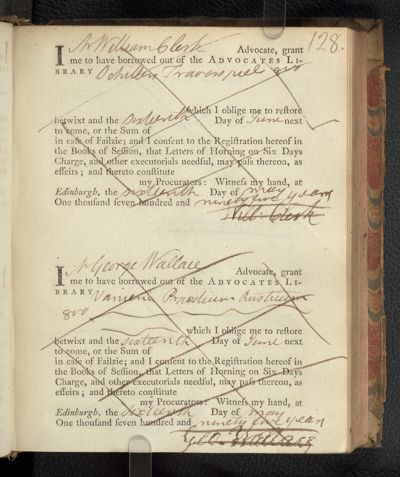 128.
I Mr William Clerk Advocate, grant
me to have borrowed out of the ADVOCATES LI-
BRARY
which I oblige me to reſtore
betwixt and the sixteenth Day of June next
to come, or the Sum of
in caſe of Failzie; and I conſent to the Regiſtration hereof in
the Books of Seſſion, that Letters of Horning on Six Days
Charge, and other executorials needful, may paſs thereon, as
effeirs; and thereto conſtitute
my Procurators: Witneſs my hand, at
Edinburgh, the sixteenth Day of may
One thouſand ſeven hundred and ninety five years
Will: Clerk
I Mr George Wallace Advocate, grant
me to have borrowed out of the ADVOCATES LI-
BRARY Vanierii Praedium Rusticum
8vo
which I oblige me to reſtore
betwixt and the sixteenth Day of June next
to come, or the Sum of
in caſe of Failzie; and I conſent to the Regiſtration hereof in
the Books of Seſſion, that Letters of Horning on Six Days
Charge, and other executorials needful, may paſs thereon, as
effeirs; and thereto conſtitute
my Procurators: Witneſs my hand, at
Edinburgh, the sixteenth Day of may
One thouſand ſeven hundred and ninety five years
Wallace